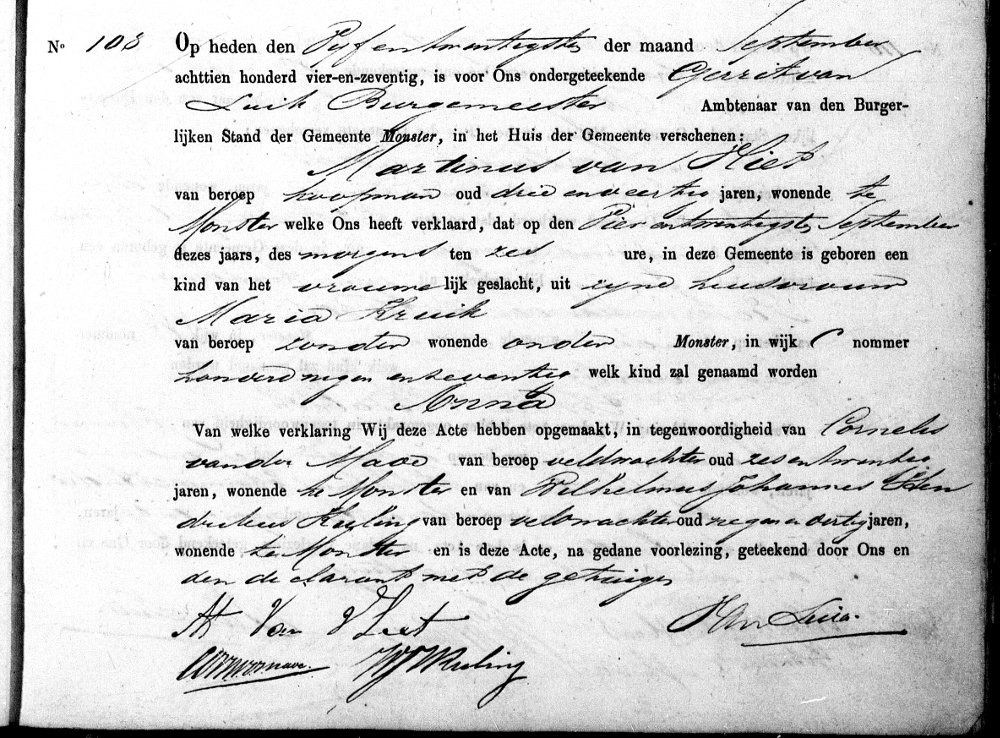 No 108 Op heden den Vyfentwintigsten der maand September
achttien honderd vier-en-zeventig, is voor Ons ondergeteekende Gerrit van
Luik Burgemeester Ambtenaar van den Burger-
lijken Stand der Gemeente Monster, in het Huis der Gemeente verschenen:
Martinus van Vliet
van beroep koopman oud drie en veertig jaren, wonende te
Monster welke Ons heeft verklaard, dat op den Vier entwintigsten September
dezes jaars, des morgens ten zes ure, in deze Gemeente is geboren een
kind van het vrouwe lijk geslacht, uit zyne huisvrouw
Maria Kruik
van beroep zonder wonende onder Monster, in wijk C nommer
honderd negen en zeventig welk kind zal genaamd worden
Anna
Van welke verklaring Wij deze Acte hebben opgemaakt, in tegenwoordigheid van Cornelis
van der Mave van beroep veldwachter oud zes en twintig
jaren, wonende te Monster en van Wilhelmus Johannes Hen
dricus van beroep veldwachter oud negen en dertig jaren,
wonende te Monster en is deze Acte, na gedane voorlezing, geteekend door Ons en
den declarant met de getuigen
M Van Vliet